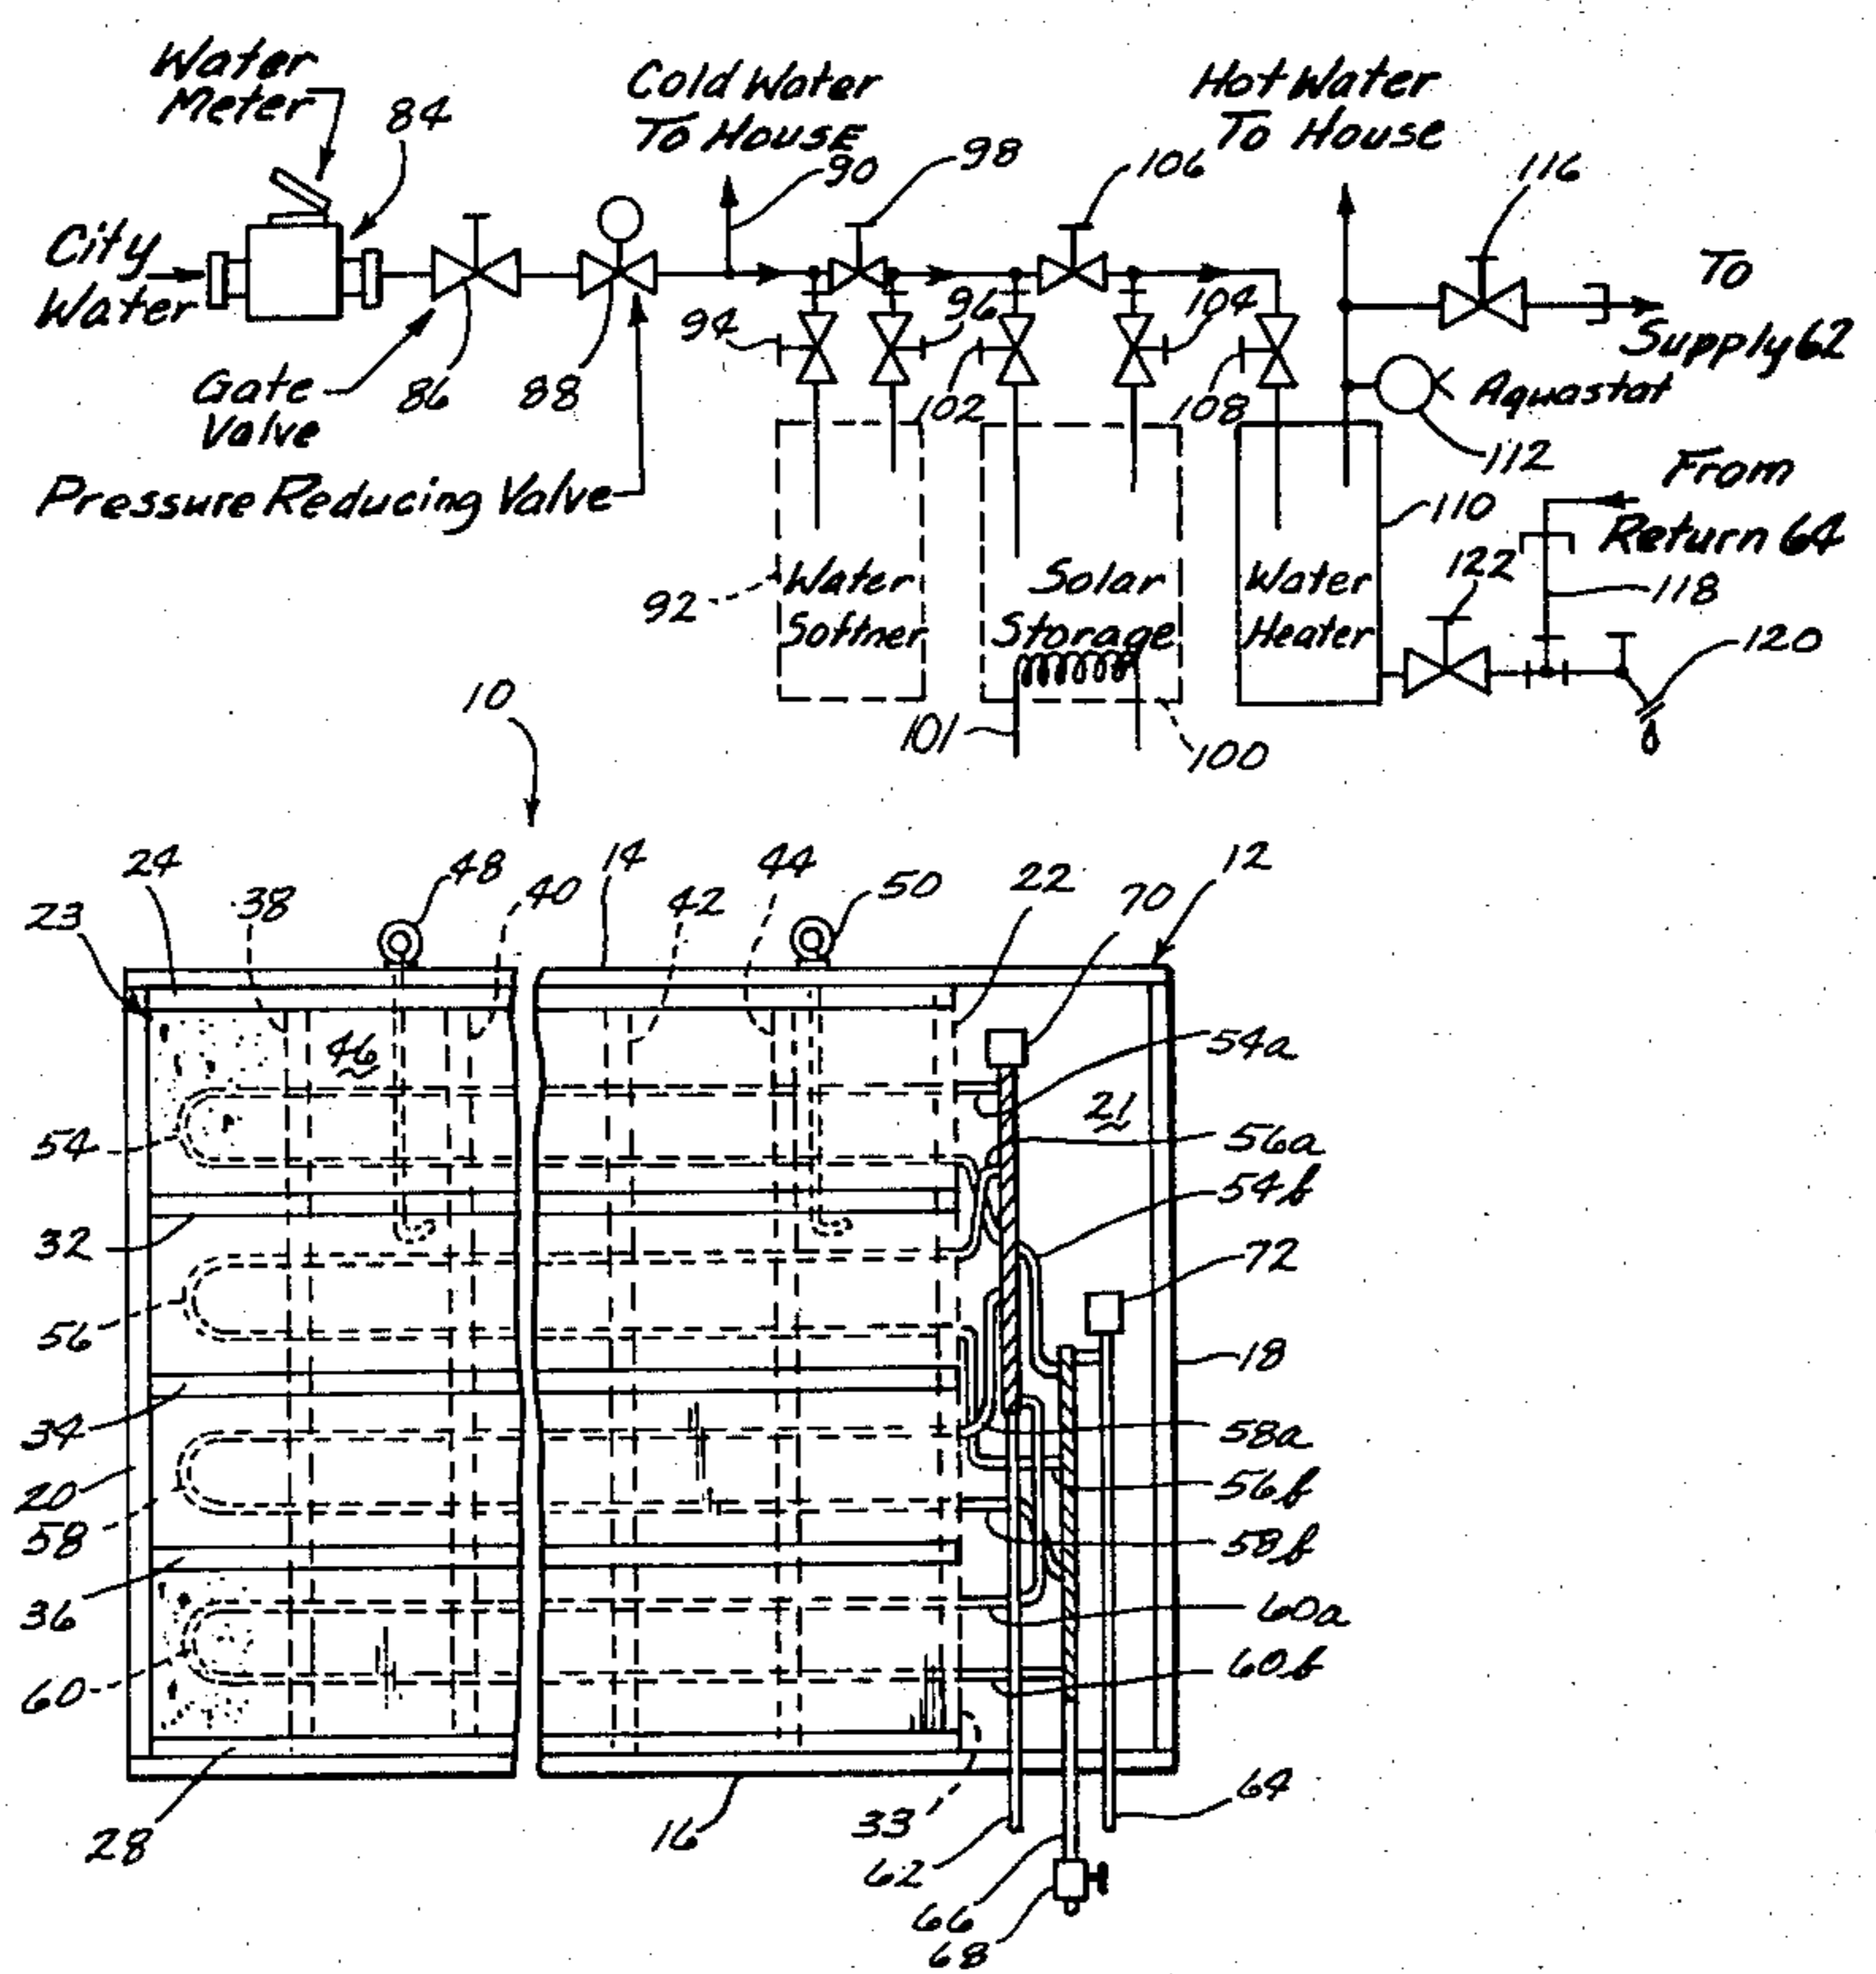 Water
Meter
84
Cold Water
To House
90
98
Hot Water
To House
106
116
City
Water
To
Supply 62
94
96
102
104
108
Gate
Valve
86
88
Aquastat
112
Pressure Reducing Valve
From
Return 64
110
118
122
120
92
Water
Softner
Solar
Storage
Water
Heater
101
100
10
24
38
48
40
14
42
44
50
22
70
12
23
46
54a
21
56a
54b
54
32
72
56
18
34
58a
20
56b
58
58b
36
60a
60
60b
28
16
33
62
64
66
68